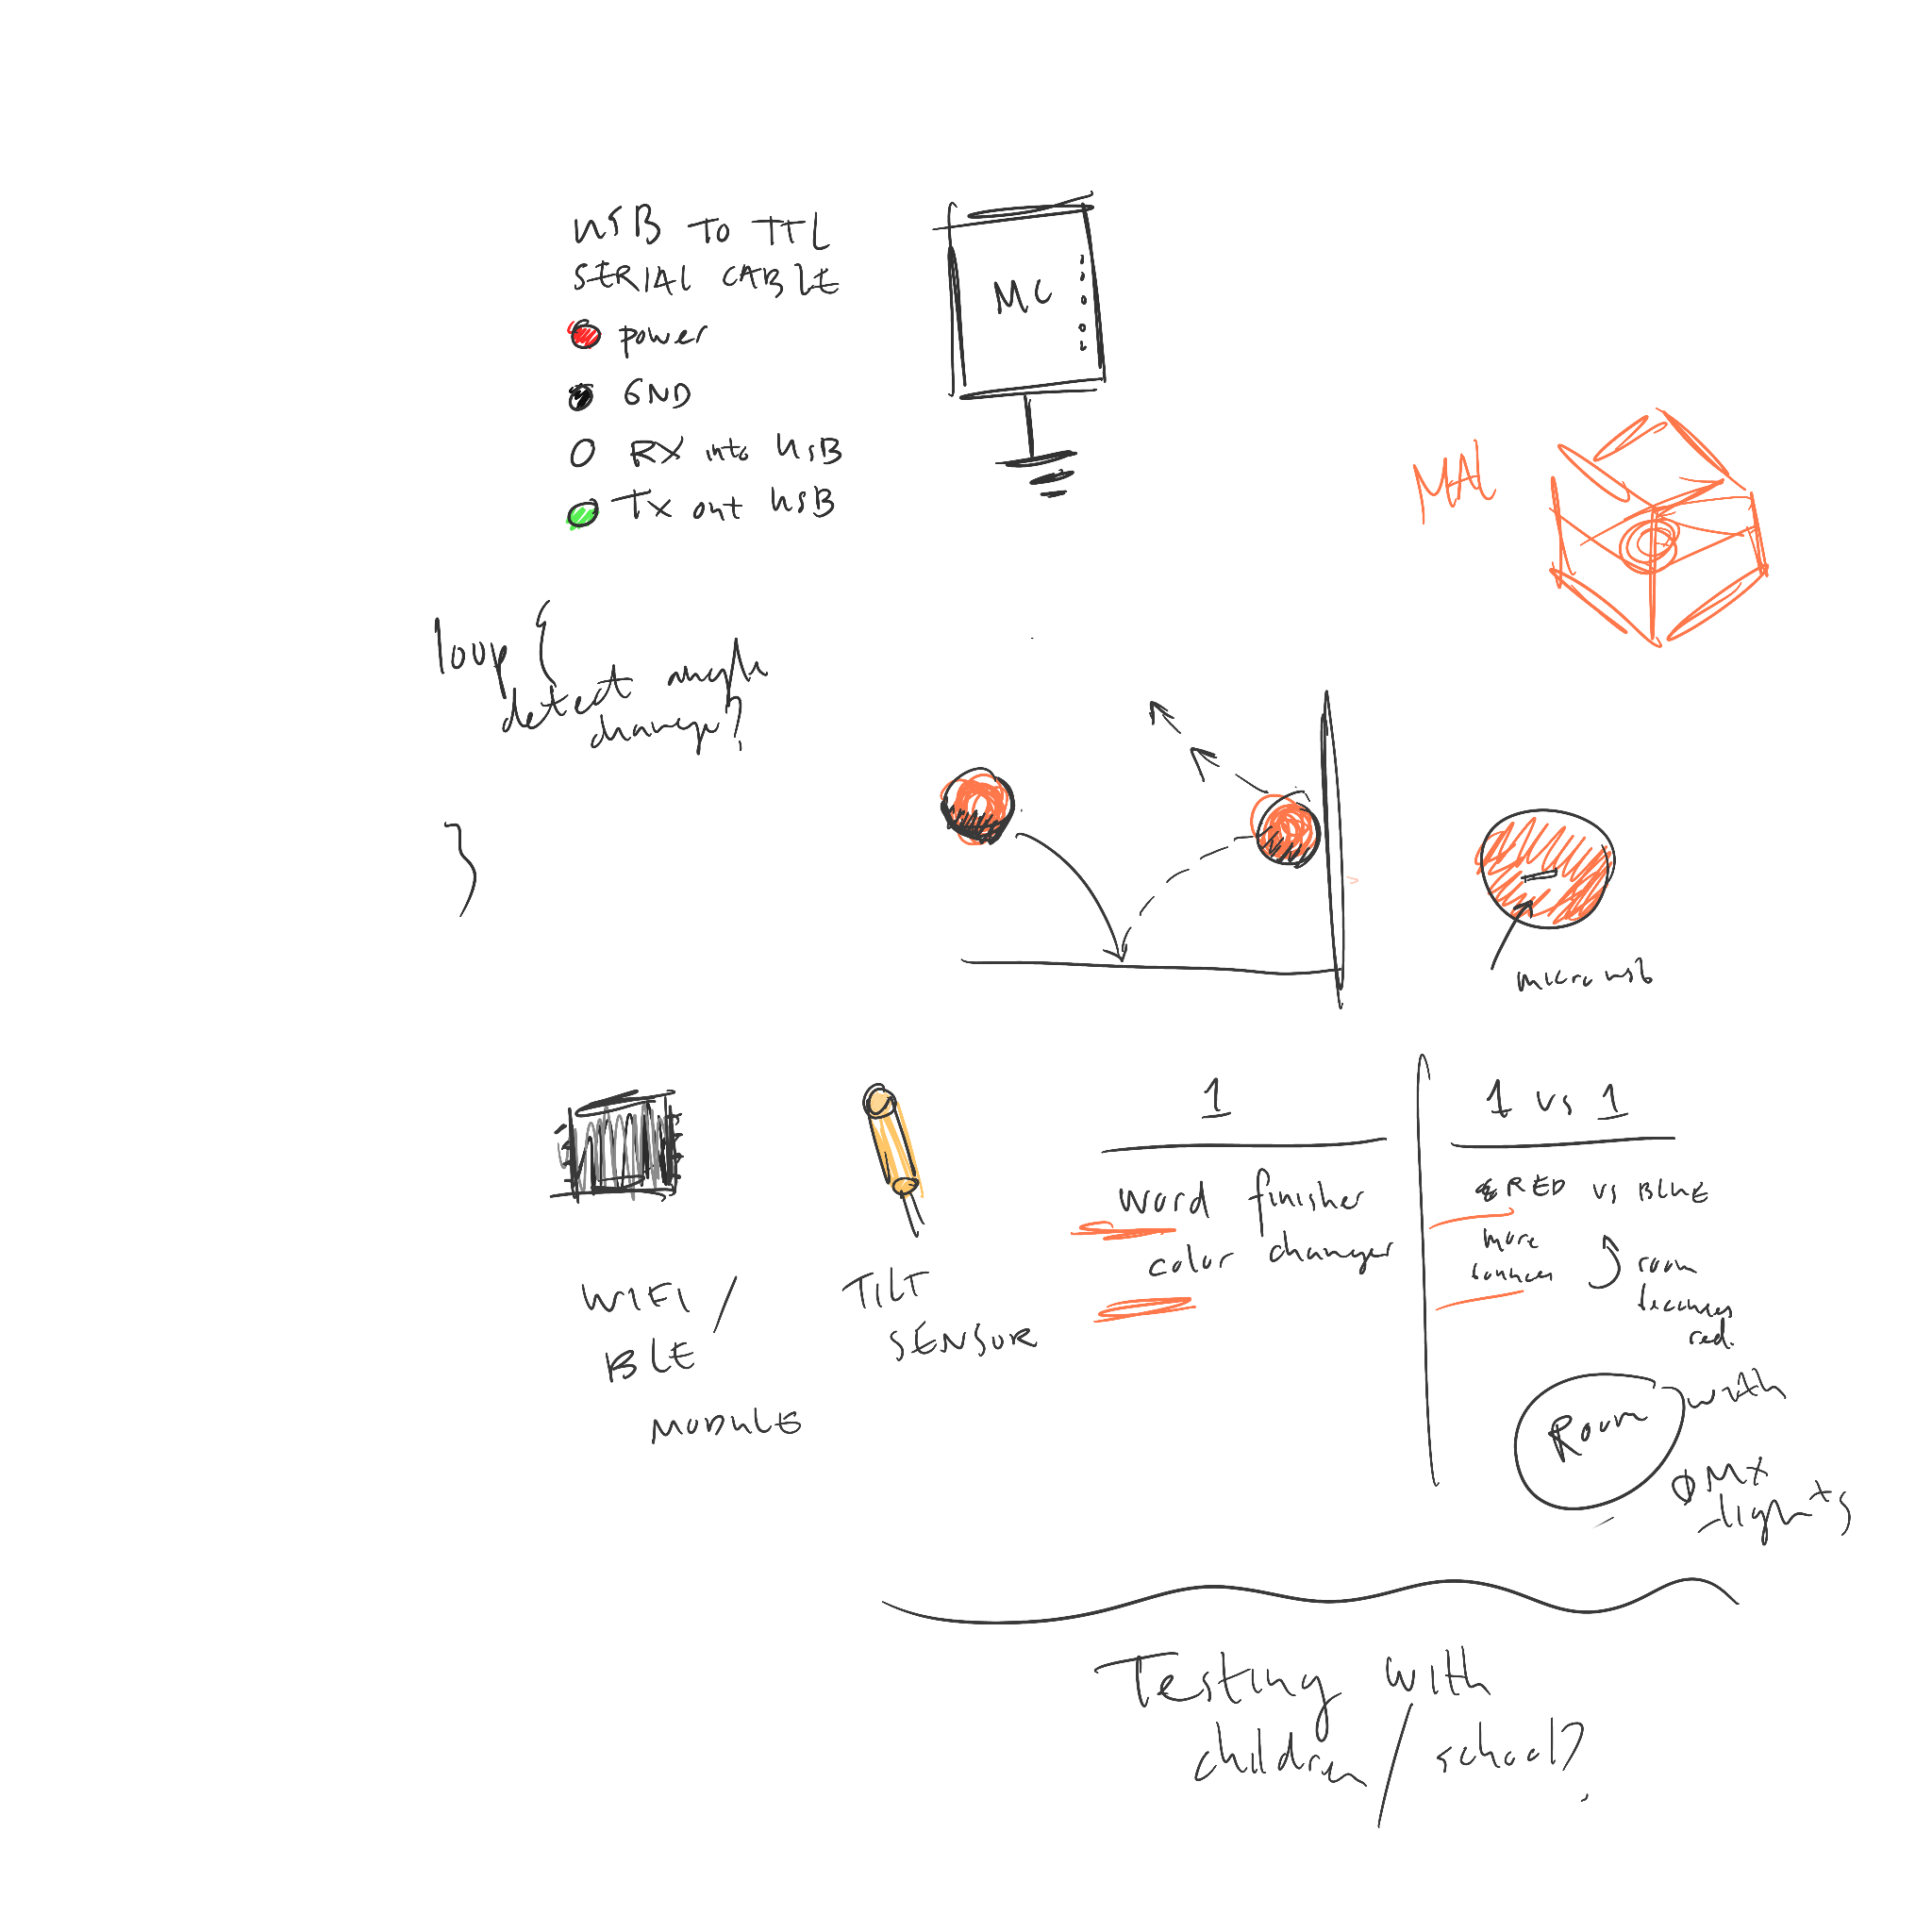 USB TO TTL
SERIAL CABLE
power
GND
RX into USB
TX out USB
MC
MAL
loop {
detect angle
change?
}
micro usb
WIFI /
BLE
MODULE
TILT
SENSOR
1
word finisher
color changer
1 vs 1
RED vs BLUE
more
bounces
room
becomes
red.
Room
with
DMX
lights
Testing with
children / school?